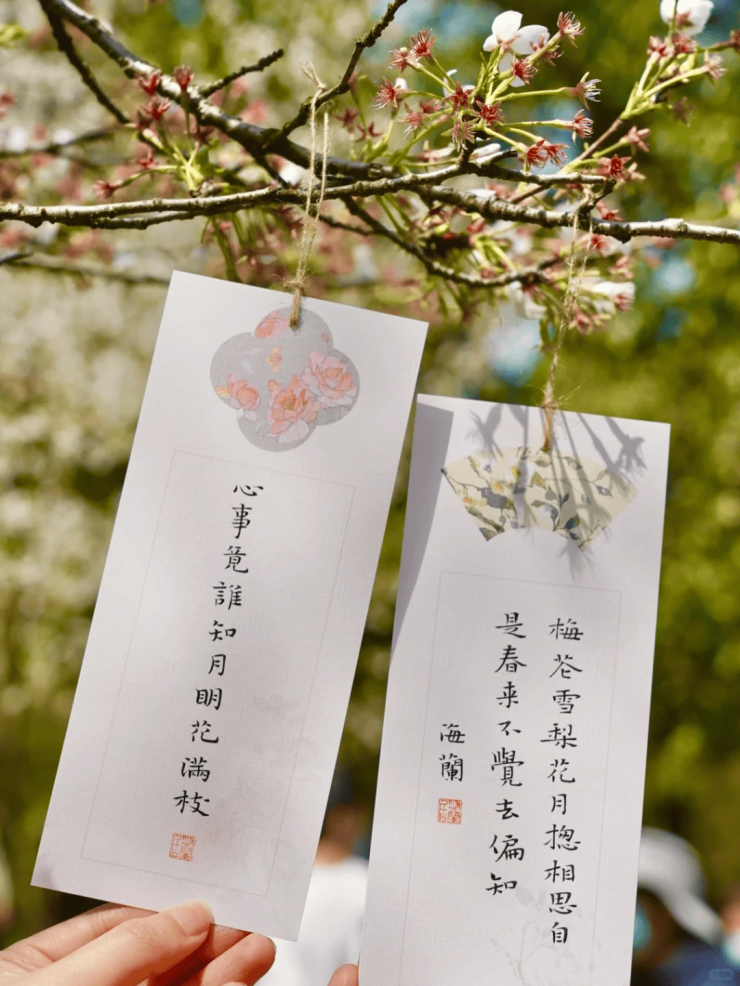 心事竟誰知月明花滿枝
梅花雪梨花月摠相思自
是春来不覺去偏知
海蘭
小红书